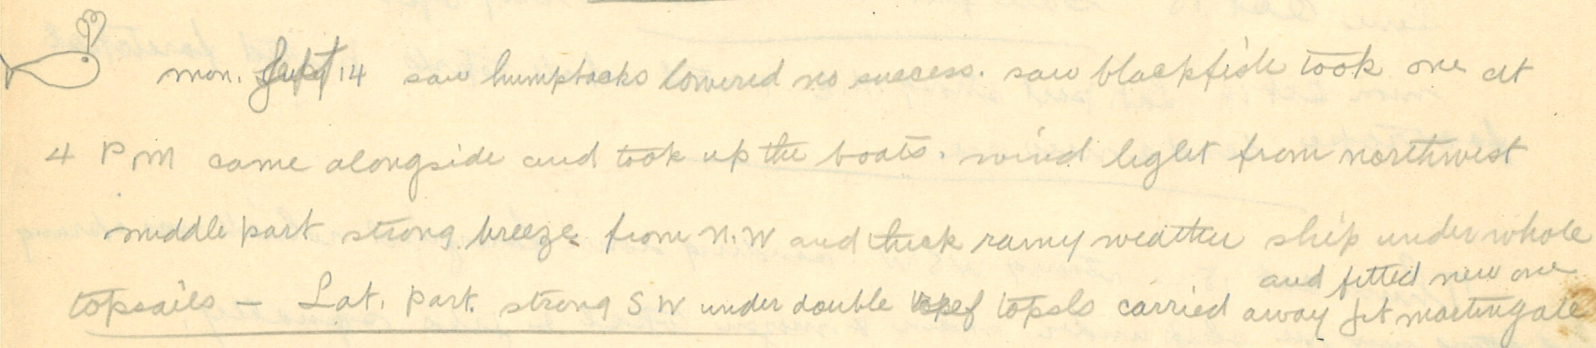 mon. Sept 14 saw humpbacks lowered no success. saw blackfish took one at
4 P M came alongside and took up the boats. wind light from northwest
middle part strong breeze from N.W and thick rainy weather ship under whole
and fitted new one
topsails - Lat. part. strong S W under double reef topsls carried away jib martingale